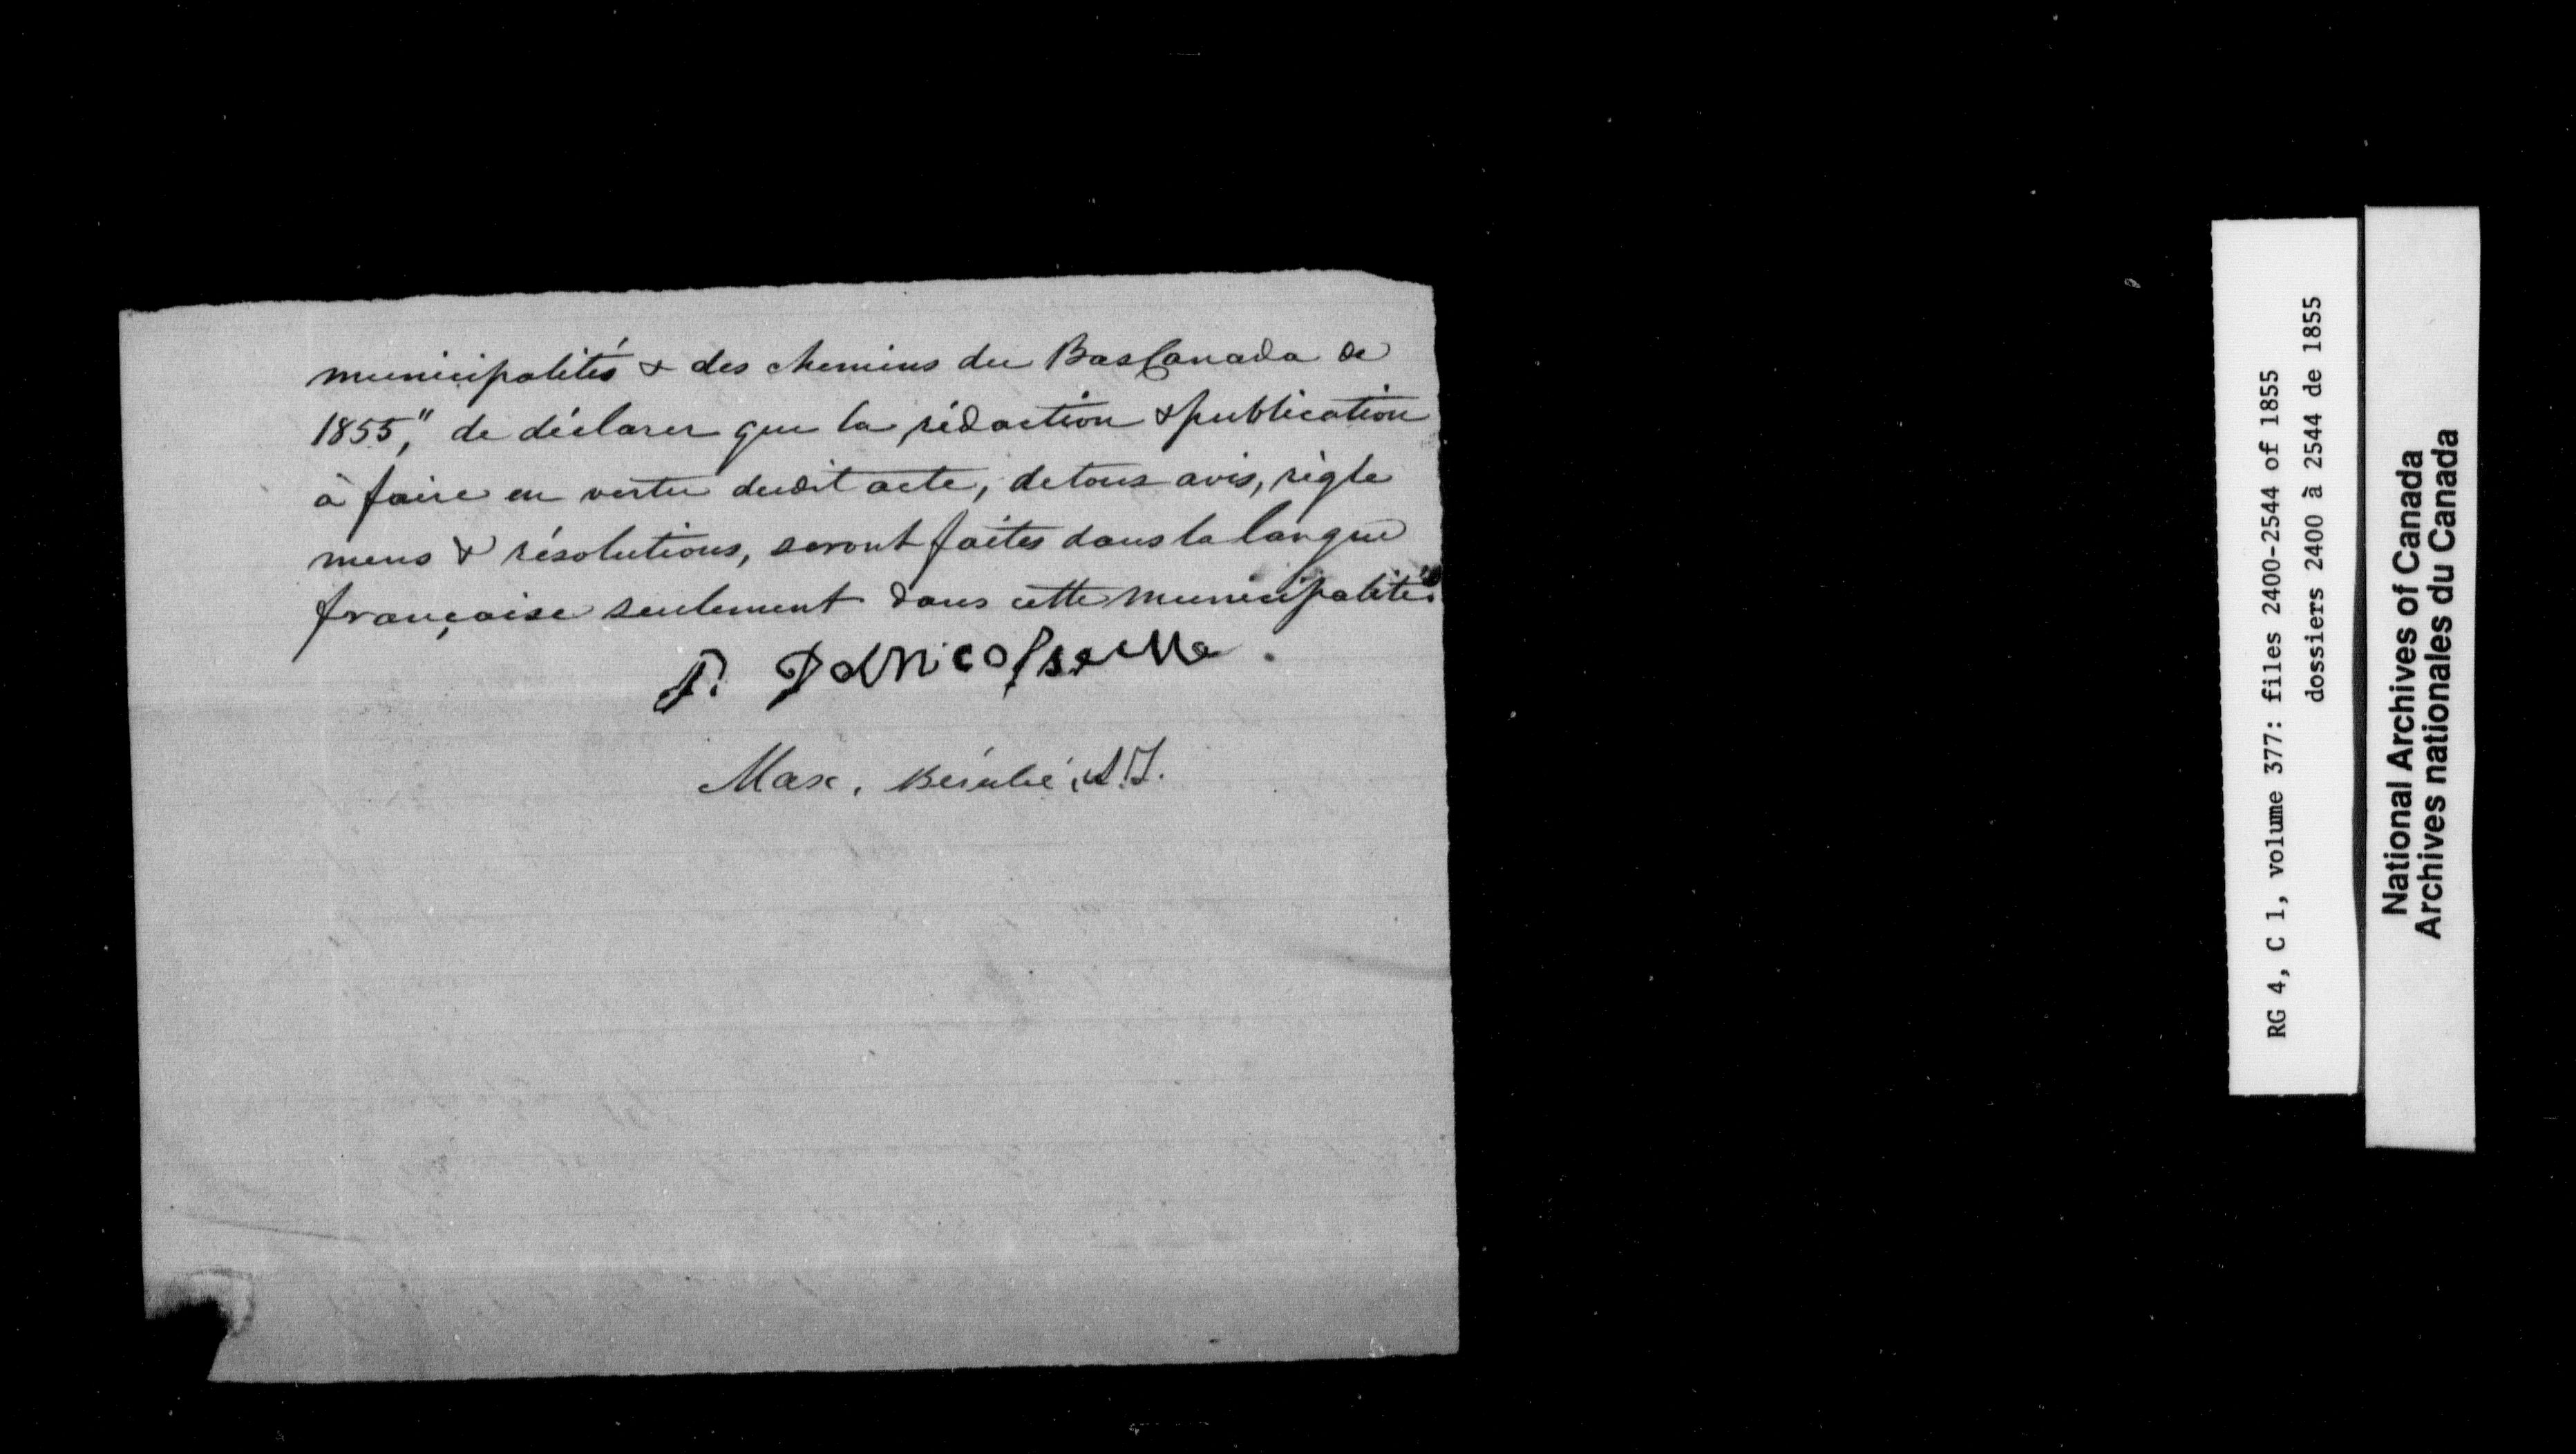 municipalités & des chemins du Bas Canada de
1855," de déclarer que la rédaction & publication
à faire en vertu dudit acte, de tous avis, règle
mens & résolutions, seront faites dans la langue
française seulement dans cette municipalité.
Max. Bérubé, S.T.
RG 4, C 1, volume 377: files 2400-2544 of 1855
dossiers 2400 à 2544 de 1855
National Archives of Canada
Archives nationales du Canada